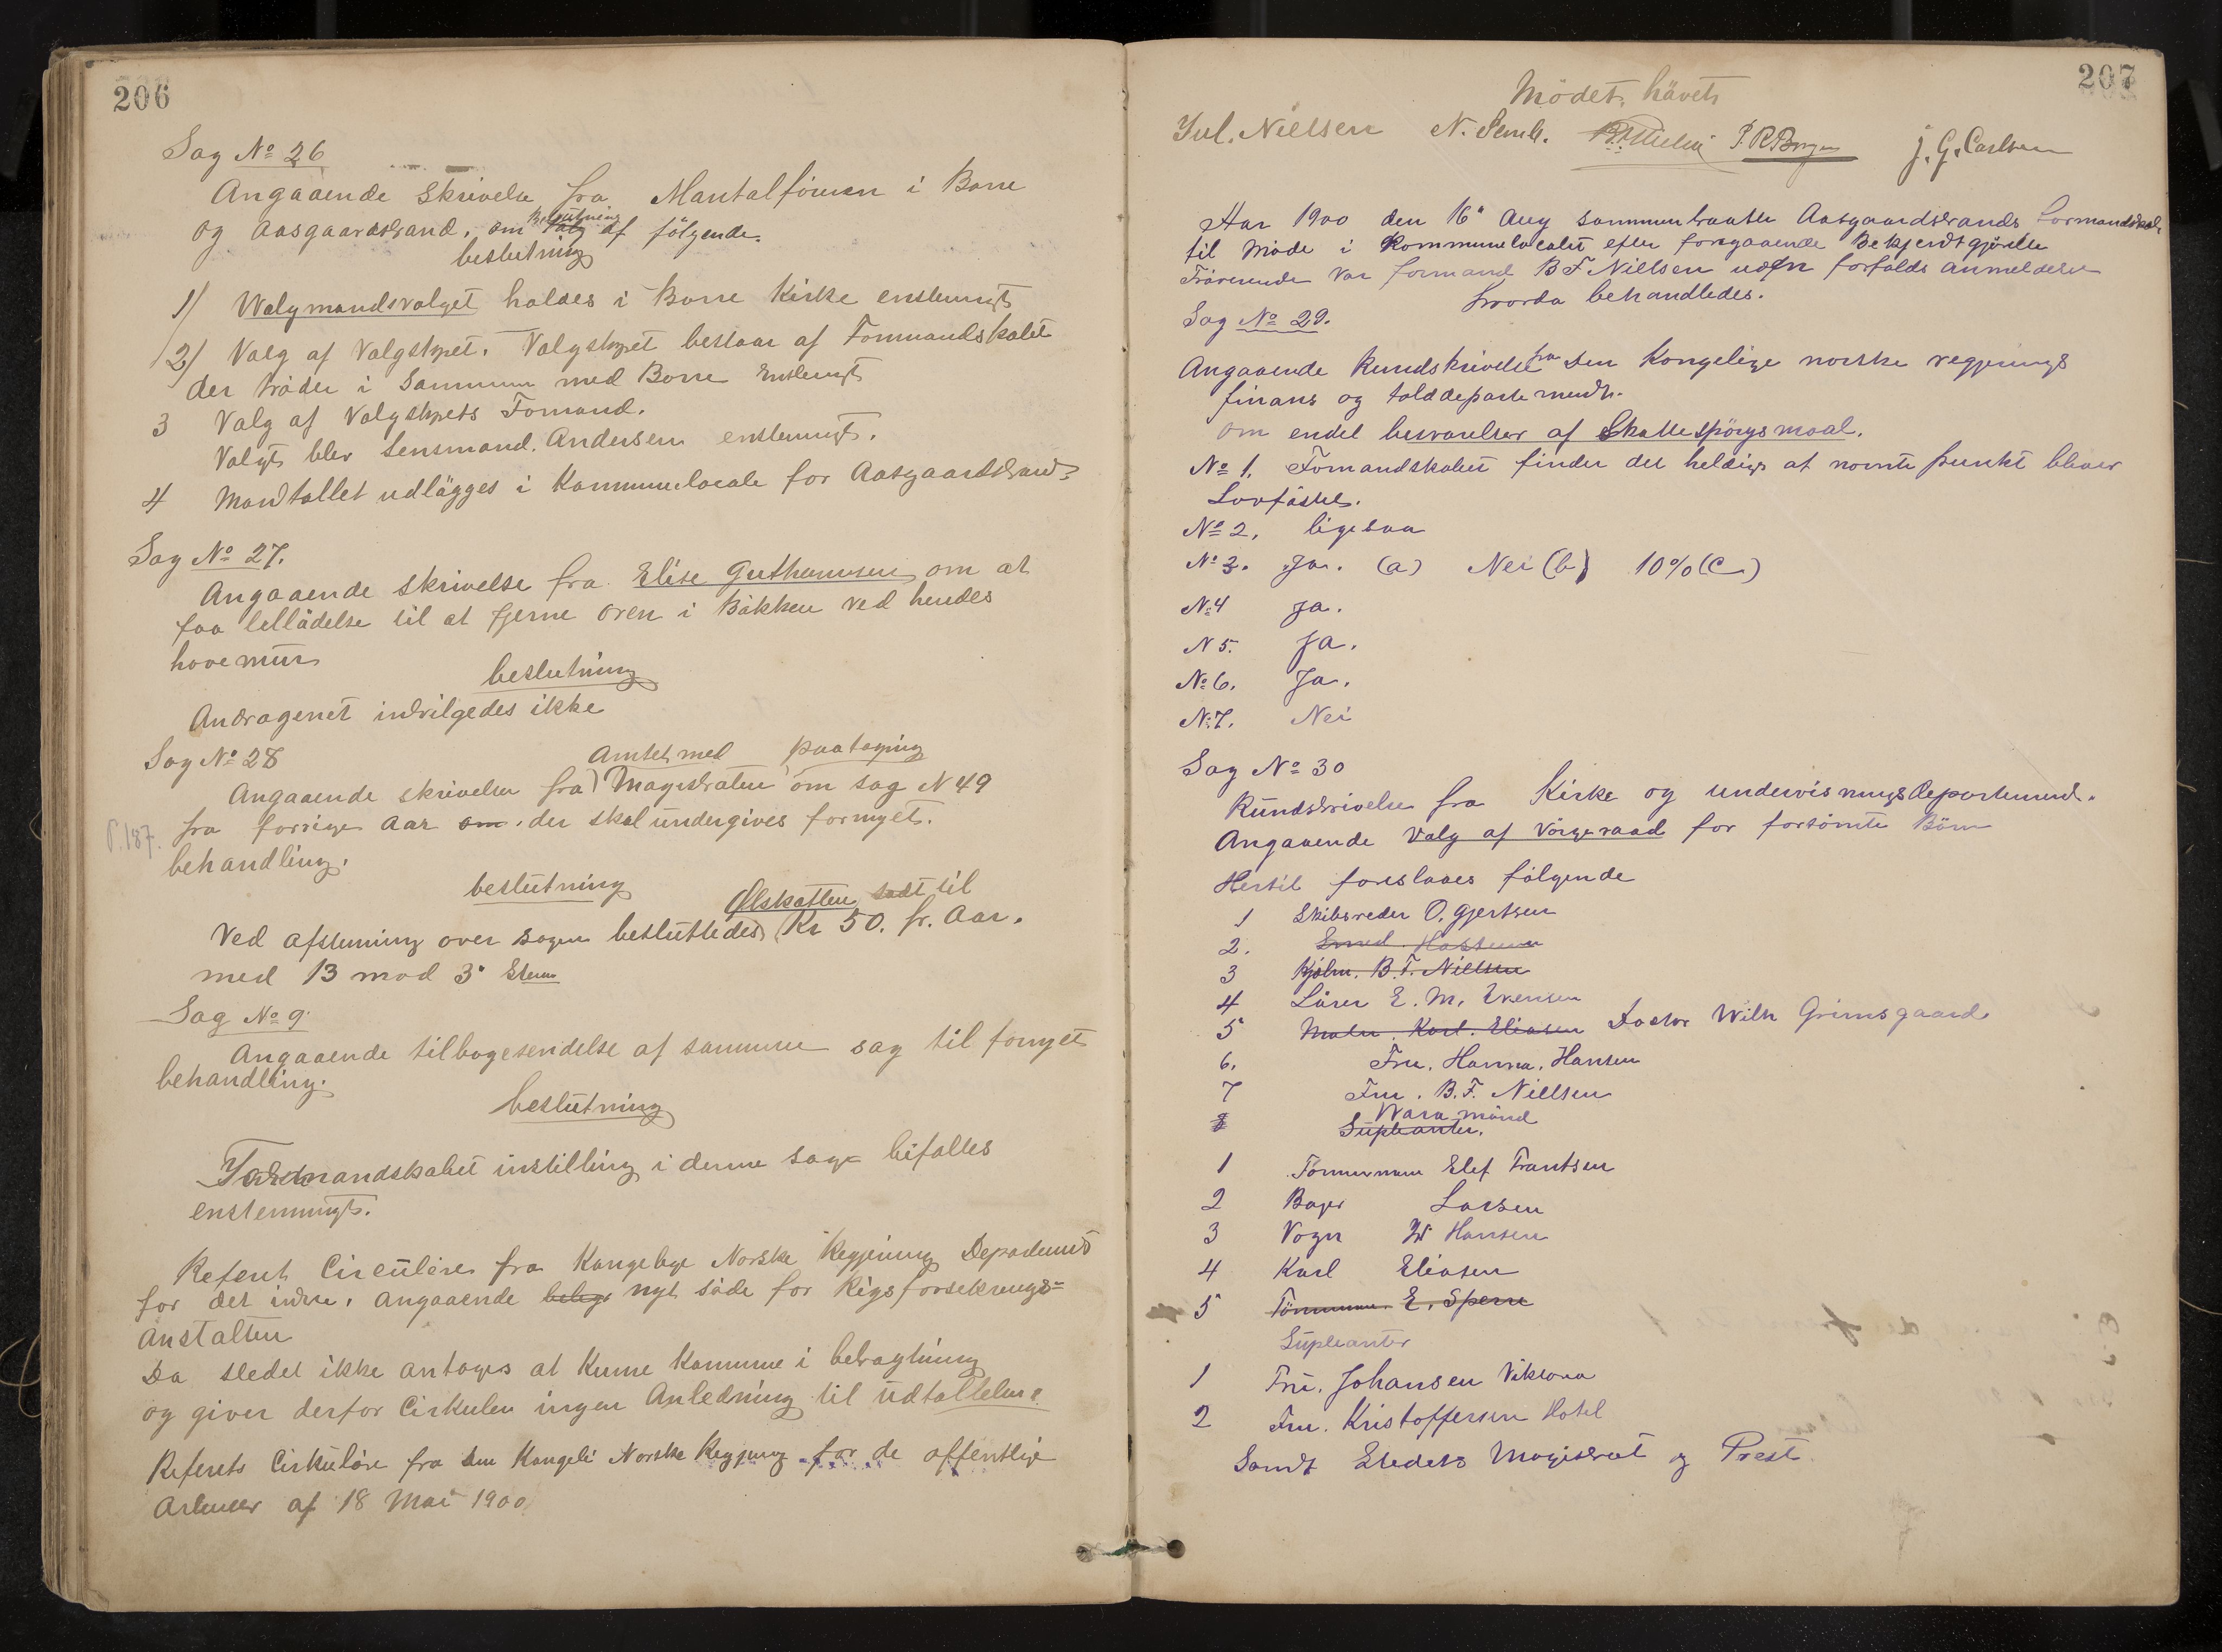 206
Sag No 26
Angaaende Skrivelse fra Mantalföreren i Borre
og Aasgaardstrand, om Beslutning Valg af fölgende.
beslutning
1) Valgmandsvalget holdes i Borre Kirke enstemigt
2) Valg af Valgstyret. Valgstyret bestaar af Formandskabet
der träder i Sammen med Borre Enstemigt
3 Valg af Valgstyrets Formand.
Valgt blev Lensmand. Andersen enstemigt.
4 Mandtallet udlägges i Kommunelocale for Aasgaardstrand
Sag No 27.
Angaaende skrivelse fra Elise Guthormsen om at
faa tellädelse til at fjerne oren i Bäkken ved hendes
havemur
beslutning
Andragenet indvilgedes ikke
Sag No 28
Amtet med paategning
Angaaende skrivelse fra Magistraten om sag N 49
P. 187. fra forrige Aar om der skal undergives fornyet.
behandling.
beslutning
Ølskatten sadt til
Ved afstemning over sagen besluttedes Kr 50. pr. Aar.
med 13 mod 3 Stem
Sag No 9.
Angaaende tilbagesendelse af samme sag til fornyet
behandling.
beslutning
Formandskabet instilling i denne sag bifaltes
enstemmigt.
Referet Circuläre fra Kongelige Norske Regjering Departement
for det indre. angaaende nyt säde for Rigsforsekrings-
anstalten
Da stedet ikke antages at kunne komme i betragtning
og giver derfor Cirkulen ingen Anledning til udtallelse.
Referets Cirkuläre fra den Kongeli Norske Regjering for de offentlige
Arbeider af 18 Mai 1900
207
Mödet hävet
Jul. Nielsen N. Semb. P. R. Borgen J. G. Carlsen
Aar 1900 den 16 Aug sammentraatte Aasgaardstrands Formandskab
til Möde i Kommunelocalet efter forgaaende Bekjendtgjörelse
Frävarende var formand B F Nielsen uden forfalds anmeldelse
hvorda behandledes.
Sag No 29.
Angaaende Rundskrivelse fra den Kongelige norske regjerings
finans og tolddepartement.
om endel besvarelser af Skattespörgsmaal.
No 1. Formandskabet finder det heldigt at nevnte punkt bliver
Lovfästet.
No 2. ligesaa
No 3. Ja. (a) Nei (b) 10% (c)
No 4 Ja.
N 5. Ja.
No 6. Ja.
No 7. Nei
Sag No 30
Rundskrivelse fra Kirke og undervisningsdepartement.
Angaaende Valg af Värgeraad for forsömte Börn
Hertil foreslaaes fölgende
1 Skibsreder O. Gjertsen
2. Smed. Hassum
3 Kjöbm. B. F. Nielsen
4 Lärer E. M. Evensen
5 Maler. Karl. Eliasen Doctor Wilh Grimsgaard
6. Fru. Hanna. Hansen
7 Fru. B. F. Nielsen
Vara mänd
Supleanter.
1 Tömmermann Elef Frantsen
2 Bager Larsen
3 Vogn W Hansen
4 Karl Eliasen
5 Tömmerm. E. Sperre
Supleanter
1 Fru. Johansen Viktoria
2 Fru. Kristoffersen Hotel
Samt Stedets Magistrat og Prest